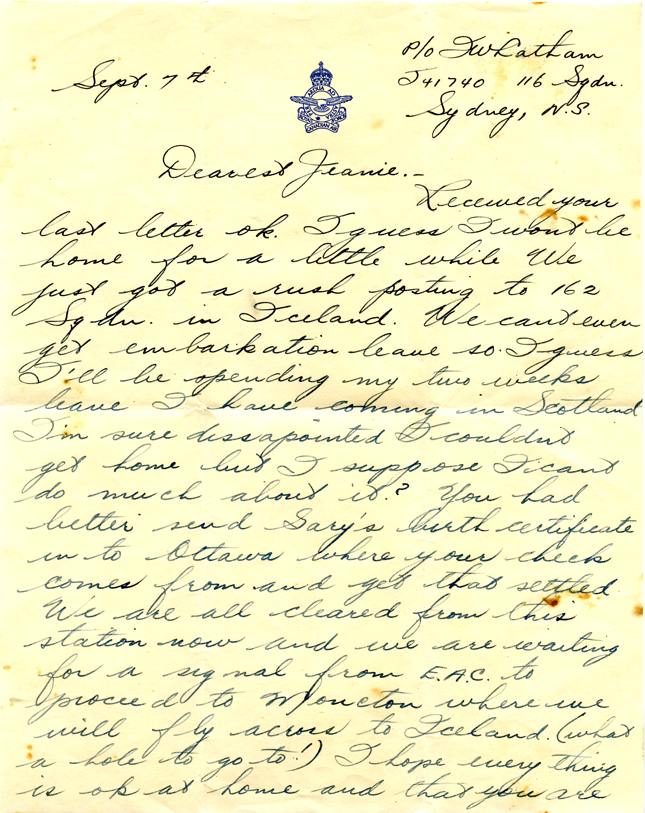 P/O F W Latham
Sept. 7th
J41740 116 Sqdn.
Sydney, N.S.
Dearest Jeanie.-
Received your
last letter ok. I guess I wont be
home for a little while We
just got a rush posting to 162
Sqdn. in Iceland. We cant even
get embarkation leave so I guess
I'll be spending my two weeks
leave I have coming in Scotland
I'm sure dissapointed I couldnt
get home but I suppose I cant
do much about it.? You had
better send Gary's birth certificate
in to Ottawa where your check
comes from and get that settled.
We are all cleared from this
station now and we are waiting
for a signal from E.A.C. to
proceed to Moncton where we
will fly across to Iceland. (what
a hole to go to!) I hope every thing
is ok at home and that you are